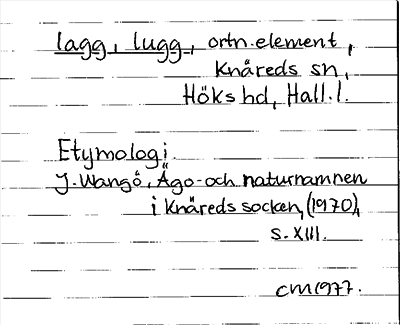 lagg, lugg, ortn.element,
Knäreds sn,
Höks hd, Hall. l.
Etymologi
J. Wangö, Ägo- och naturnamnen
i Knäreds socken, (1970),
s. XIII.
CM 1977.